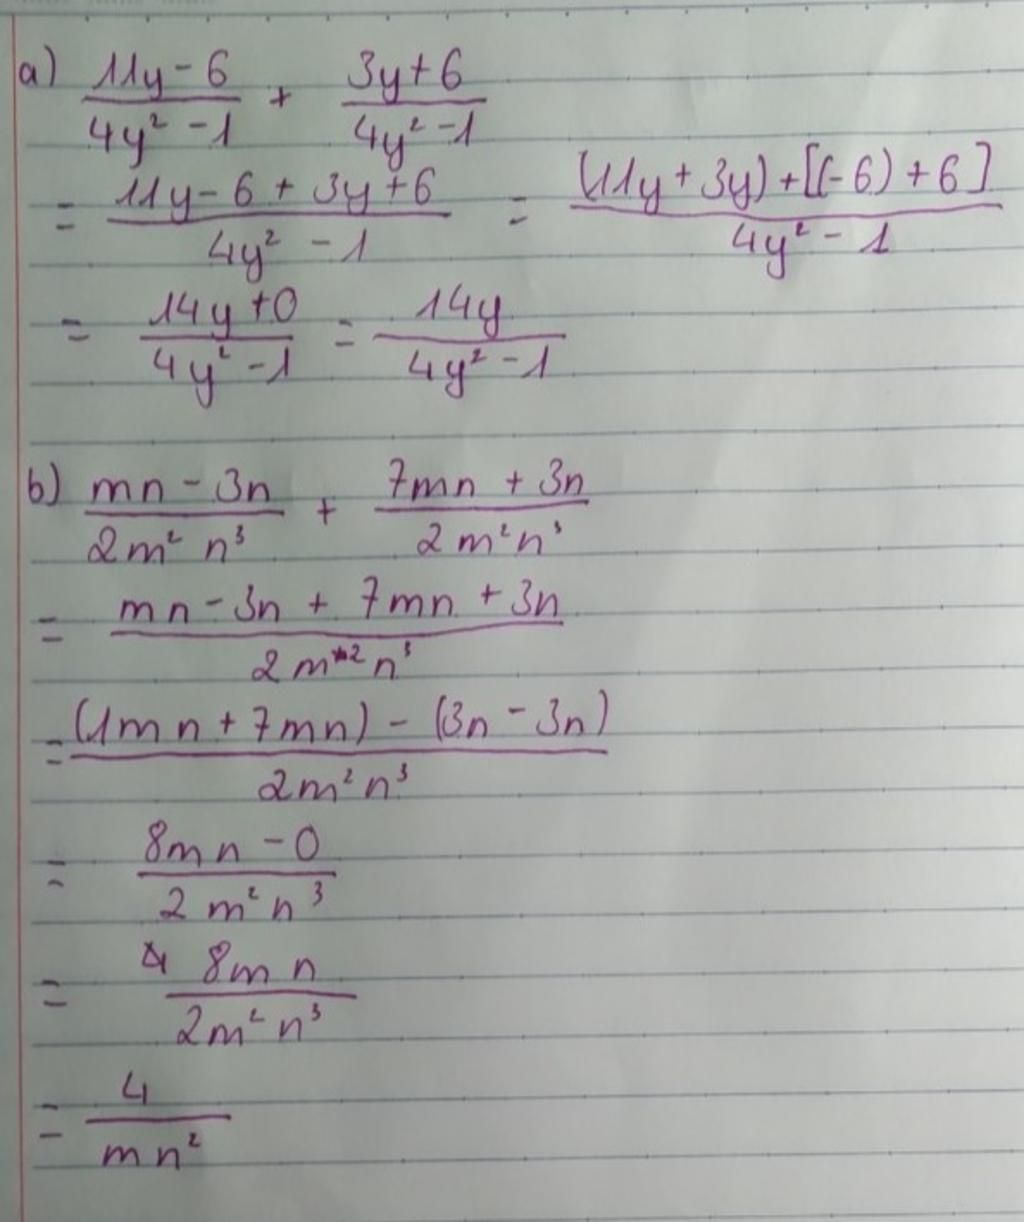 a) (11y - 6)/(4y² - 1) + (3y + 6)/(4y² - 1)
= (11y - 6 + 3y + 6)/(4y² - 1) = ((11y + 3y) + [(-6) + 6])/(4y² - 1)
= (14y + 0)/(4y² - 1) = 14y/(4y² - 1)
b) (mn - 3n)/(2m² n³) + (7mn + 3n)/(2m²n³)
= (mn - 3n + 7mn + 3n)/(2m²n³)
= ((1mn + 7mn) - (3n - 3n))/(2m²n³)
= (8mn - 0)/(2m²n³)
= 8mn/(2m²n³)
= 4/(mn²)